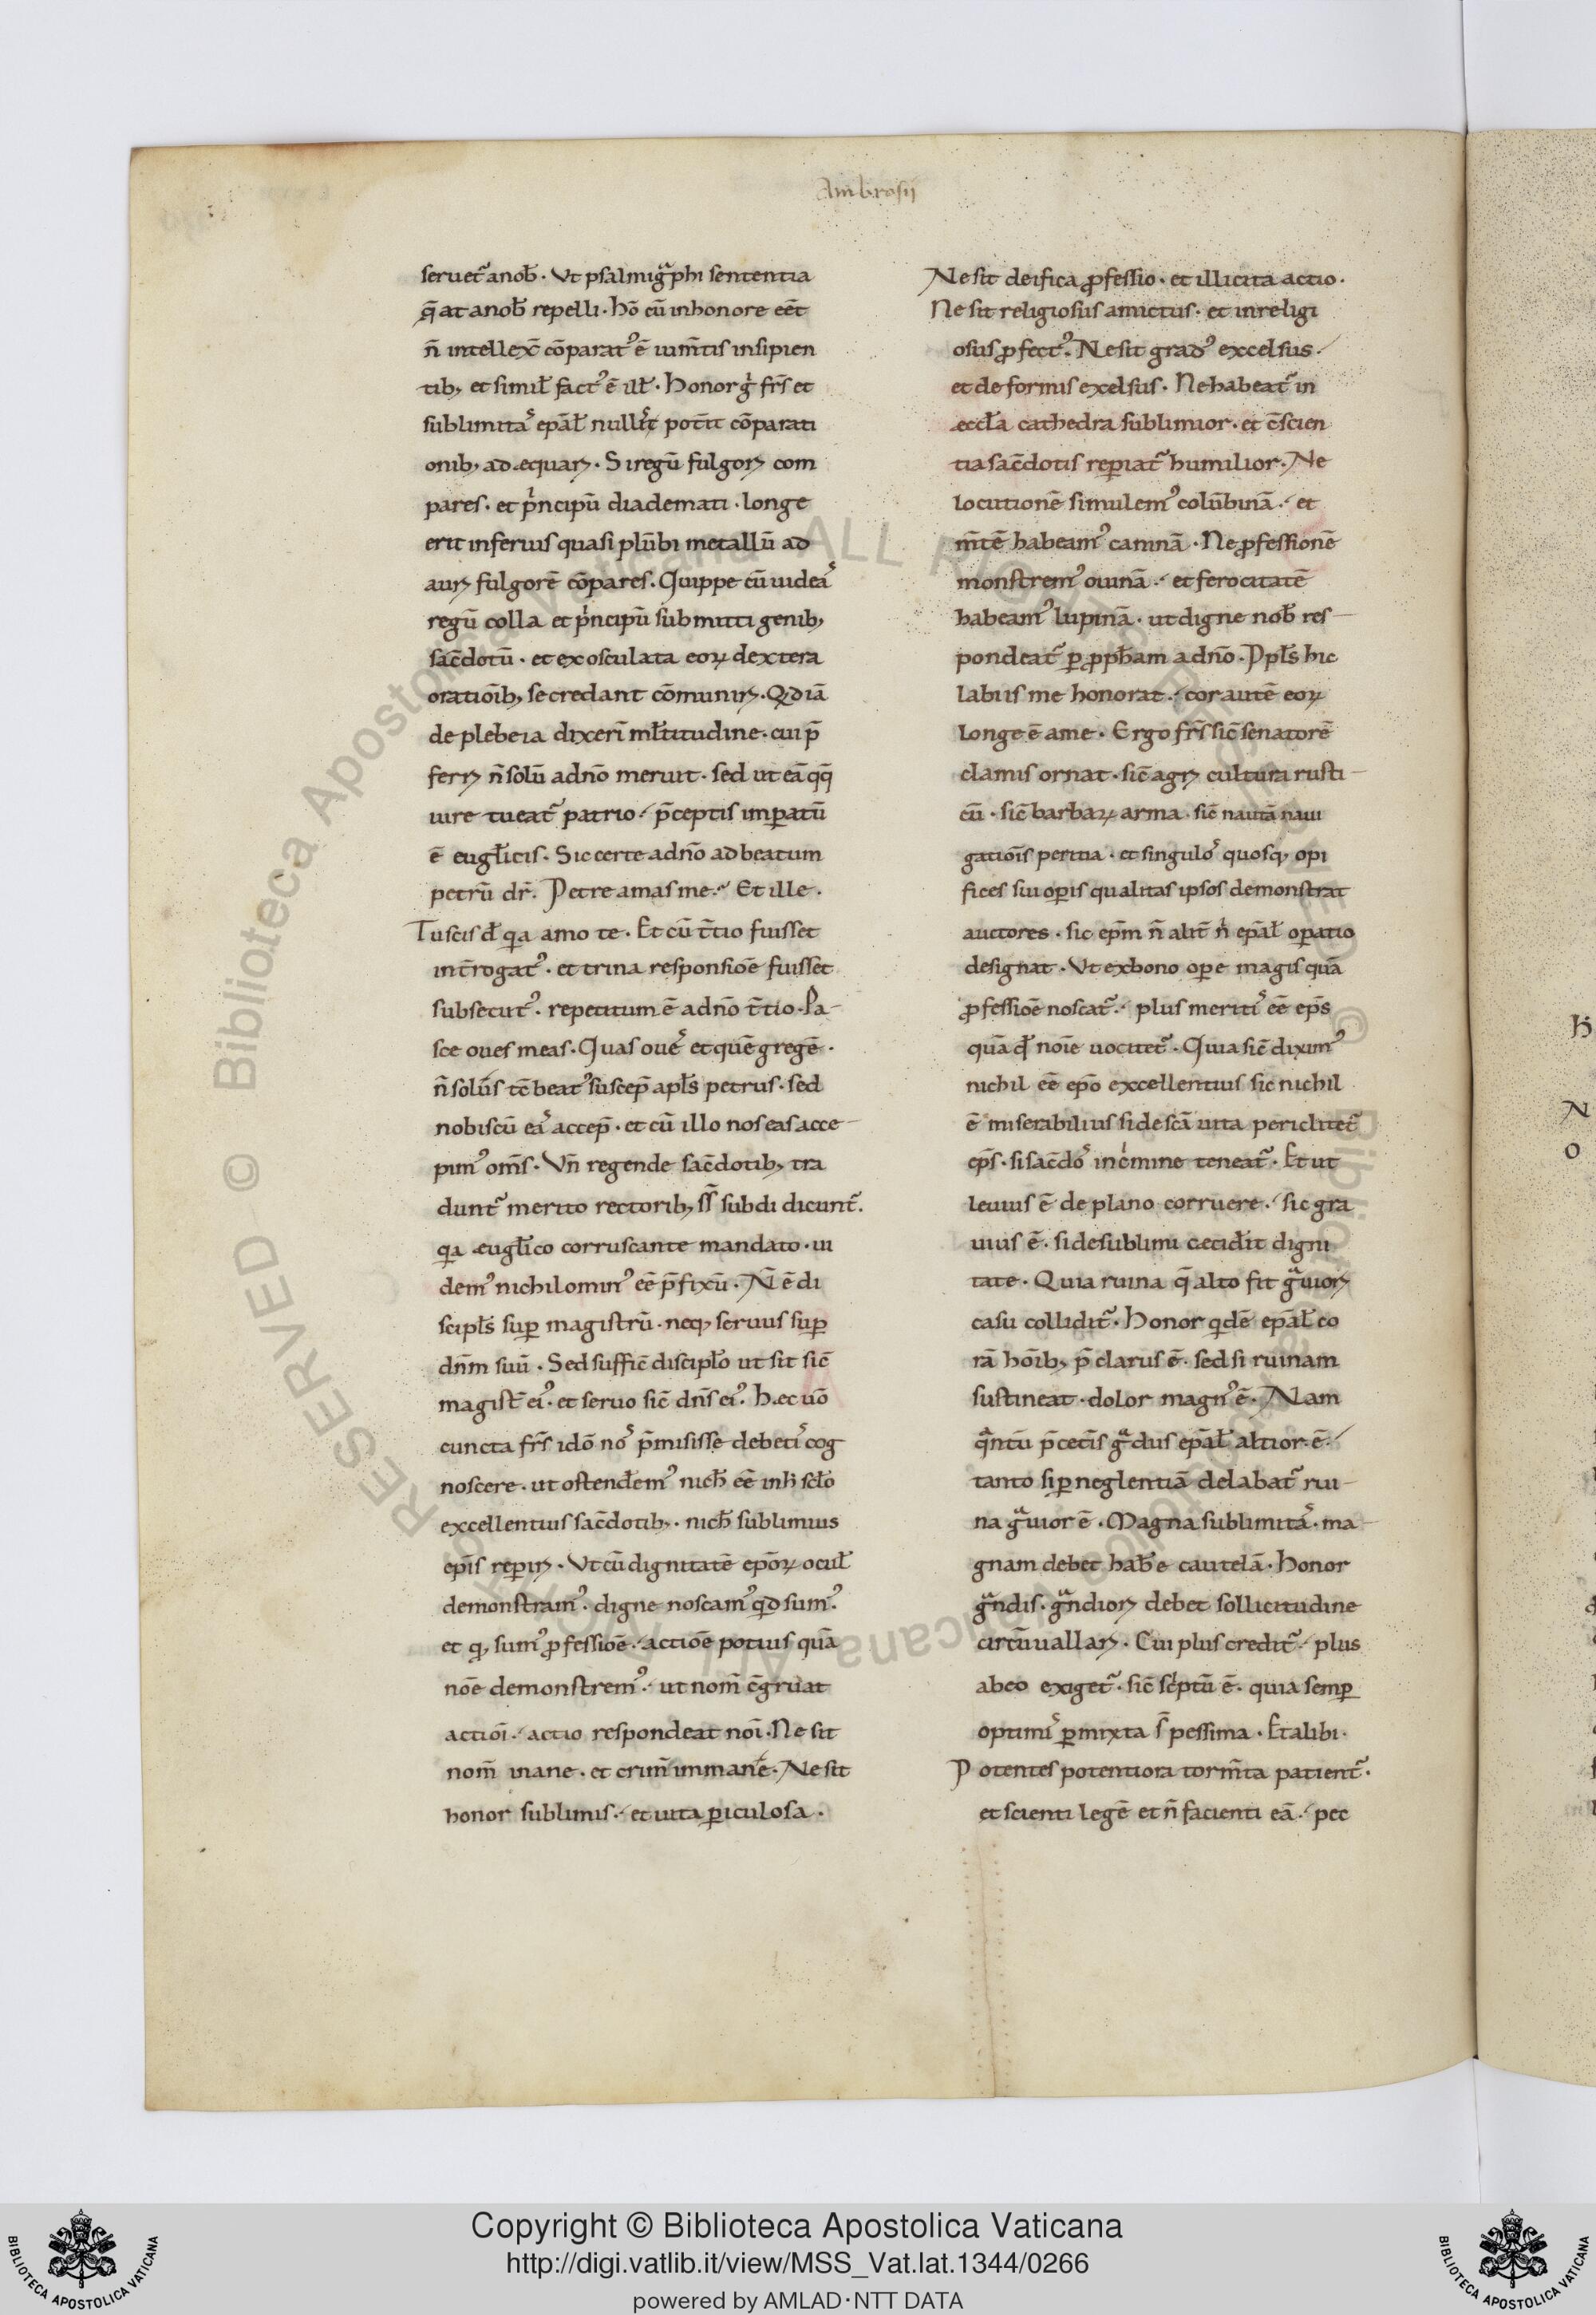 Ambrosij
seruet᷒ anob̄. Vt psalmigͣphi sententia
q̄at anob̄ repelli. hō cū inhonore eēt
n̄ intellex̄ cōparatꝰ ē ium̄tis insipien
tib; et simil̄ factꝰ ē ill̄. Honor gͥ fr̄s et
sublimitaˢ ep̄al̄ nullͥˢ pot̄it cōparati
onib; ad ęquarꝫ. Si regū fulgorꝫ com
pares. et pͥncipū diademati. longe
erit inferius quasi plūbi metallū ad
aurꝫ fulgorē cōpares. Quippe cū uideaˢ
regū colla et pͥncipū submitti genib;
sac̄dotū. et exosculata eoꝝ dextera
oratioīb; se credant cōmunirꝫ. Qd iā
de plebeia dixeri᷒ ml̄titudine. cui p̄
ferrꝫ n̄ solū adn̄o meruit. sed ut eā qq̄
iure tueat᷒ patrio. p̄ceptis imꝑatū
ē eugl̄icis. Sic certe adn̄o ad beatum
petrū dr̄. Petre amas me. Et ille.
Tu scis d̄ qa amo te. Et cū t̄tio fuisset
int̄rogatꝰ. et trina responsiōe fuisset
subsecutꝰ. repetitum ē adn̄o t̄tio. Pa-
sce oues meas. Quas oueˢ et quē gregē.
n̄ solū s tc̄ beatꝰ suscep̄ apl̄s petrus. sed
nobiscū eaˢ accep̄. et cū illo nos eas acce-
pimꝰ om̄s. Vn̄ regende sac̄dotib; tra
dunt᷒ merito rectorib; ss᷒ subdi dicunt᷒.
qa ęugl̄ico corruscante mandato. ui
demꝰ nichilominꝰ eē p̄fixū. N̄ ē di
scipl̄s suꝑ magistrū. neq; seruus suꝑ
dn̄m suū. Sed suffic̄ discipl̄o ut sit sic̄
magist̄ eiꝰ. et seruo sic̄ dn̄s eiꝰ. Hęc uō
cuncta fr̄s idō noˢ p̄misisse debetiˢ cog
noscere. ut ostend̄emꝰ nich̄ eē inh̄ scl̄o
excellentius sac̄dotib;. nich̄ sublimius
ep̄is reꝑirꝫ. Vt cū dignitatē ep̄oꝝ ocul̄
demonstramꝰ. digne noscamꝰ qd sumꝰ.
et q; sumꝰ ꝓfessiōe. actiōe potius quā
nōe demonstremꝰ. ut nom̄ c̄gruat
actioī. actio respondeat noī. Ne sit
nom̄ inane. et crim̄ immanē. Ne sit
honor sublimis. et uita ꝑiculosa.
Ne sit deifica ꝓfessio. et illicita actio.
Ne sit religiosus amictus. et inreligi
osus ꝓfectꝰ. Ne sit gradꝰ excelsus.
et deformis excelsus. Ne habeat᷒ in
ęccl̄a cathedra sublimior. et c̄scien
tia sac̄dotis reꝑiat᷒ humilior. Ne
locutionē simulemꝰ colūbinā. et
m̄tē habeamꝰ caninā. Ne ꝓfessionē
monstremꝰ ouinā. et ferocitatē
habeamꝰ lupinā. ut digne nob̄ res-
pondeat᷒ ꝑ ꝓph̄am adn̄o. Ppl̄s hic
labiis me honorat. cor autē eoꝝ
longe ē ame. Ergo fr̄s sic̄ senatorē
clamis ornat. sic̄ agrꝫ cultura rusti-
cū. sic̄ barbaꝝ arma. sic̄ nautā naui
gatioīs peritia. et singuloˢ quosq; opi
fices sui oꝑis qualitas ipsos demonstrat
auctores. sic ep̄m n̄ alit̄ nͥ ep̄al̄ oꝑatio
designat. Vt ex bono oꝑe magis quā
ꝓfessiōe noscat᷒. plus meritiˢ eē ep̄s
quā qd̄ noīe uocitet᷒. Quia sic̄ diximꝰ
nichil eē ep̄o excellentius sic nichil
ē miserabilius si de scā uita periclitet᷒
ep̄s. si sac̄doˢ in cͥmine teneat᷒. Et ut
leuius ē de plano corruere. sic gra
uius ē. si de sublimi cecid̄it digni
tate. Quia ruina q̄ alto fit gͣuiorꝫ
casu collidit᷒. Honor qdē ep̄al̄ co
rā hoīb; p̄clarus ē. sed si ruinam
sustineat. dolor magnꝰ ē. Nam
qͣntū p̄cet̄is gͣdus ep̄al̄ altior ē.
tanto si ꝑ neglentiā delabat᷒ rui-
na gͣuior ē. Magna sublimitaˢ. ma-
gnam debet hab̄e cautelā. Honor
gͣndis. gͣndiorꝫ debet sollicitudine
circūuallarꝫ. Cui plus credit᷒. plus
abeo exiget᷒. sic̄ scͥptū ē. quia semꝑ
optimiˢ ꝑmixta s̄ pessima. Et alibi.
Potentes potentiora torm̄ta patient᷒.
et scienti legē et n̄ facienti eā. pec
H
N
O
Copyright © Biblioteca Apostolica Vaticana
http://digi.vatlib.it/view/MSS_Vat.lat.1344/0266
powered by AMLAD·NTT DATA
BIBLIOTECA APOSTOLICA VATICANA
BIBLIOTECA APOSTOLICA VATICANA